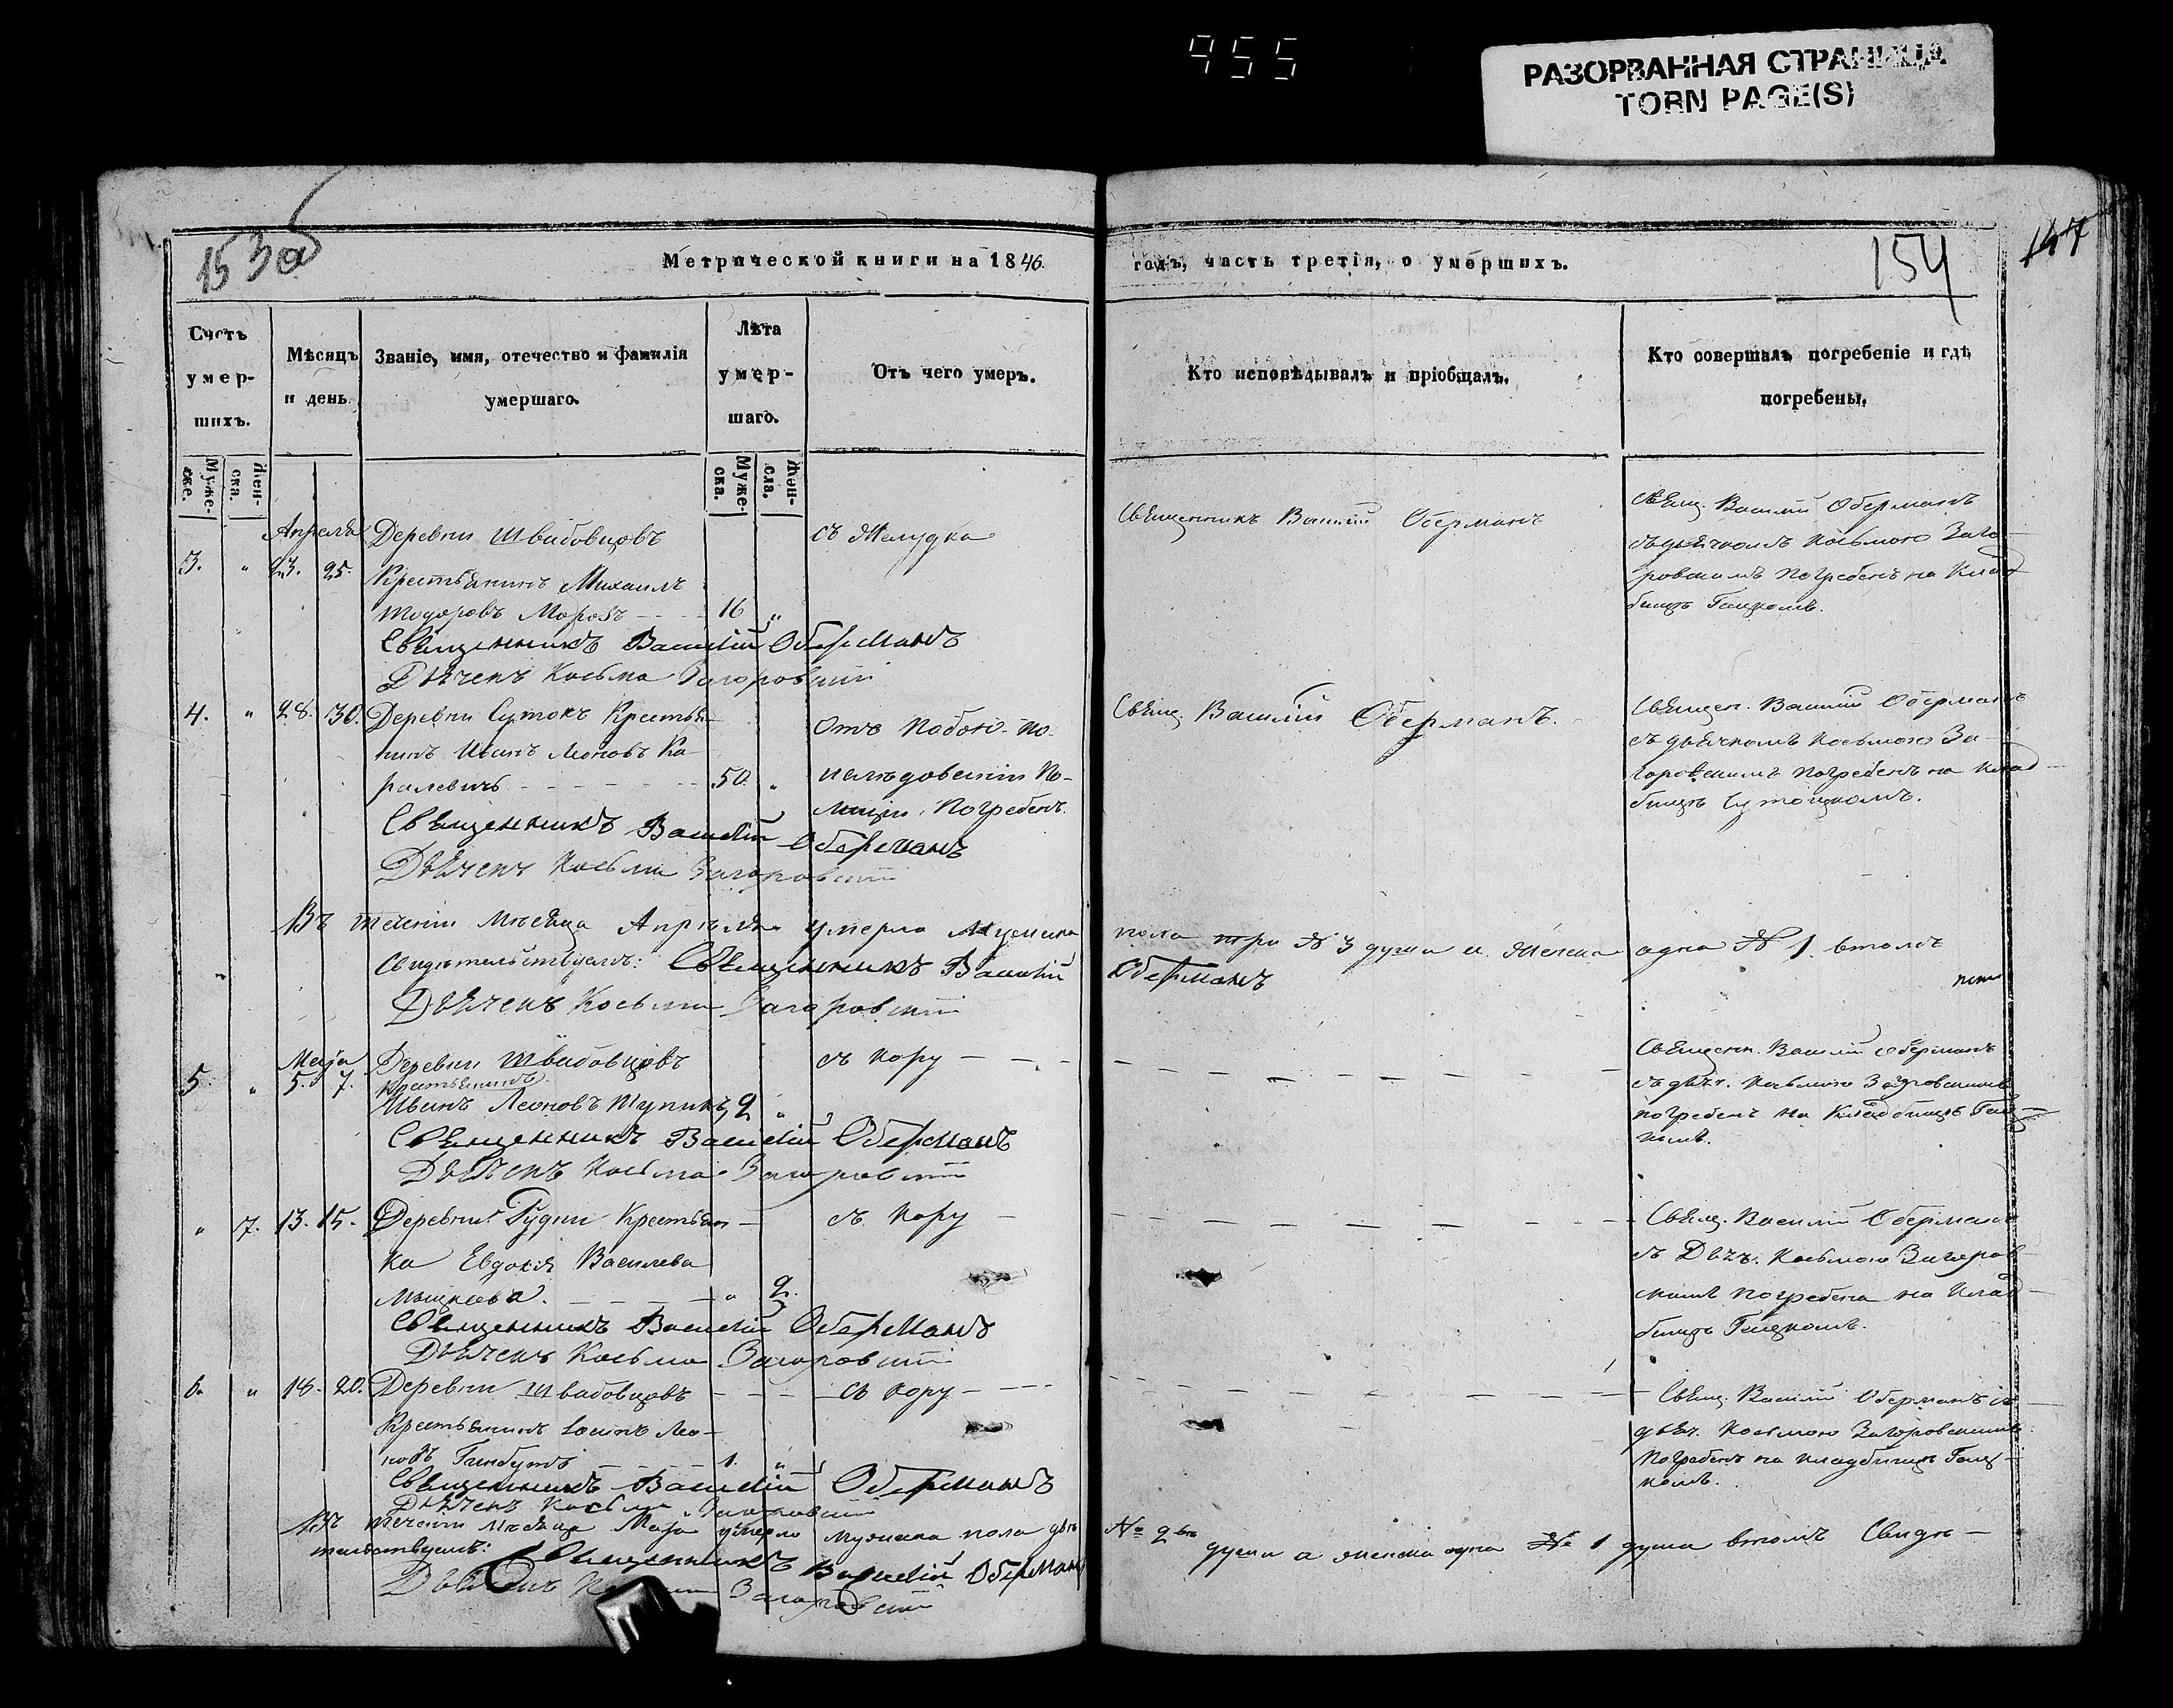 955
РАЗОРВАННАЯ СТРАНИЦА
TORN PAGE(S)
153 об
Метрической книги на 1846.
годъ, часть третія, о умершихъ.
154
147
Счетъ умер-шихъ.
Мѣсяцъ и день
Званіе, имя, отечество и фамилія умершаго.
Лѣта умер-шаго.
Отъ чего умеръ.
Кто исповѣдывалъ и пріобщалъ.
Кто совершалъ погребеніе и гдѣ погребены.
Муже-ске.
Жен-ска.
Муже-ска.
Жен-ска.
Апреля
3. " 23. 25.
Деревни Швабовцовъ
Крестьянинъ Михаилъ
Тодоровъ Моровъ 16 "
съ Желудка
Священникъ Василій Оберманъ
Свящ. Василій Оберманъ
съ дьячкомъ Косьмою Заго-
ровскимъ погребенъ на Клад-
бищѣ
Священникъ Василій Оберманъ
Дьячекъ Косьма Загоровскій
4. " 28. 30.
Деревни Сутокъ Крестья-
нинъ Иванъ Леоновъ Ка-
ралевичъ 50. "
Отъ Побою по
Полиціи, Погребенъ.
Свящ. Василій Оберманъ.
Священ. Василій Оберманъ
съ дьячкомъ Косьмою За-
горовскимъ погребенъ на Клад-
бищѣ Сутоцкомъ.
Священникъ Василій Оберманъ
Дьячекъ Косьма Загоровскій
Въ теченіи мѣсяца Апрѣля умерло мужска
пола три № 3 души и женска одна № 1. втомъ
Свидѣтельствуемъ: Священникъ Василій
Оберманъ
Дьячекъ Косьма Загоровскій
Маја
5. " 5. 7.
Деревни Швабовцовъ
Крестьянинъ
Иванъ Леоновъ Тупикъ 2 "
съ Кору
Священ. Василій Оберманъ
съ дьяч. Косьмою Загоровскимъ
погребенъ на Кладбищѣ
Священникъ Василій Оберманъ
Дьячекъ Косьма Загоровскій
" 7. 13. 15.
Деревни Рудни Крестьян-
ка Евдокія Васильева
" 2.
съ Кору
Свящ. Василій Оберманъ
съ Дьяч. Косьмою Загоров-
скимъ погребена на Клад-
бищѣ
Священникъ Василій Оберманъ
Дьячекъ Косьма Загоровскій
6. " 18. 20.
Деревни Швабовцовъ
Крестьянинъ Іосифъ Лео-
новъ 1. "
съ Кору
Свящ. Василій Оберманъ съ
дьяч. Косьмою Загоровскимъ
погребенъ на кладбищѣ
Священникъ Василій Оберманъ
Дьячекъ Косьма Загоровскій
Въ теченіи мѣсяца Маја умерло мужска пола двѣ
№ 2 двѣ души а женска одна № 1 душа втомъ Свидѣ-
тельствуемъ:
Священникъ Василій Оберманъ
Дьячекъ Косьма Загоровскій